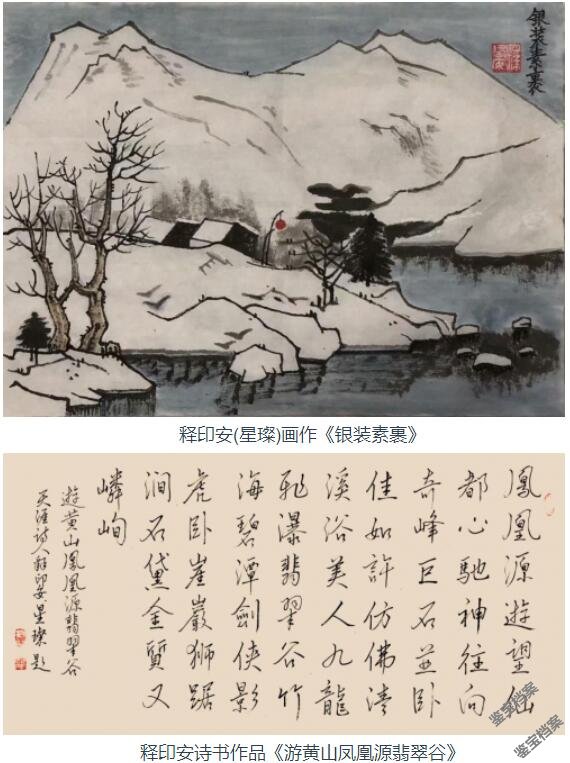 银装素裹
释印安(星璨)画作《银装素裹》
鳳凰源遊望仙
都心馳神往向
奇峰巨石并卧
佳如許仿佛清
溪浴美人九龍
飛瀑翡翠谷竹
海碧潭劍俠影
虎卧崖巖狮踞
澗石黛金質又
嶙峋
遊黄山鳳凰源翡翠谷
天涯诗人釋印安星璨题
释印安诗书作品《游黄山凤凰源翡翠谷》
鉴宝档案
鉴宝档案